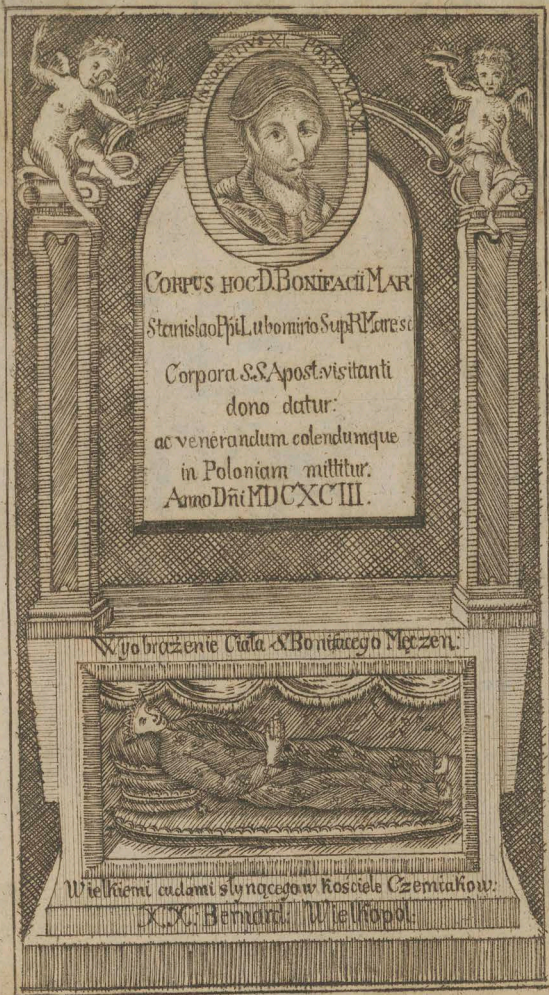 INNOCENTIVS XI. PONT. MAXI.
CORPUS HOC D. BONIFACII MAR
Stanislao Pṗi Lubomirio Sup R Maresc
Corpora S.S. Apost: visitanti
dono datur:
ac venerandum colendumque
in Poloniam mittitur.
Anno Dñi MDCXCIII.
Wyobrażenie Ciała S. Bonifacego Męczen:
Wielkiemi cudami słynącego w kościele Czerniakow:
XX: Bernard: Wielkopol: